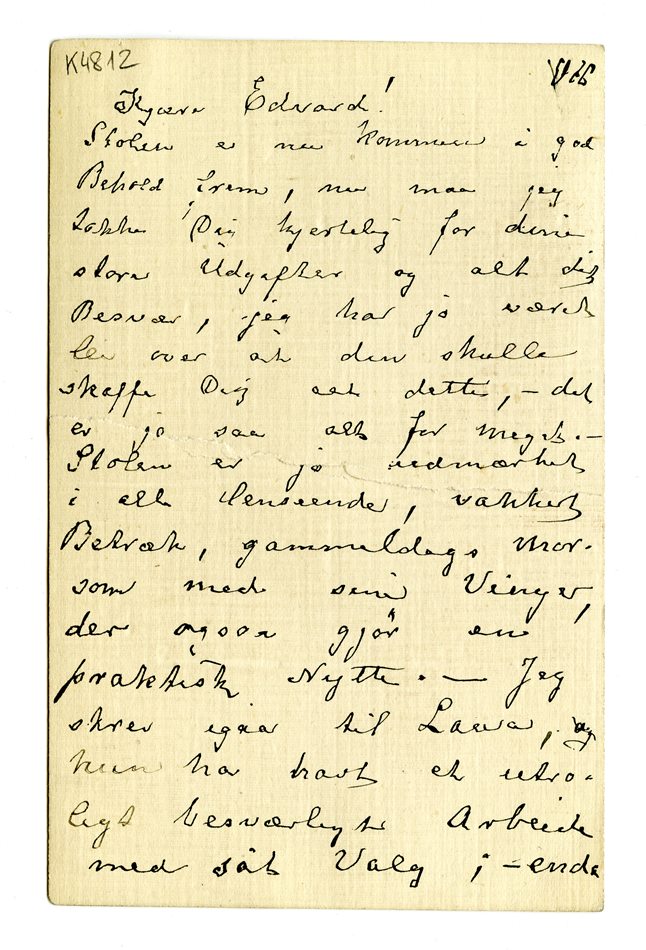 K4812
Kjære Edvard!
Stolen er nu kommen i god
Behold frem, nu maa jeg
takke Dig hjertelig for dine
store Udgifter og alt dit
Besvær, jeg har jo været
lei over at den skulle
skaffe Dig alt dette, – det
er jo saa alt for meget. –
Stolen er jo udmærket
i alle Henseender, vakkert
Betræk, gammeldags mor-
som med sine Vinger,
der ogsaa gjör en
praktisk Nytte. – Jeg
skrev igaa til Laura, og
hun har havt et utro-
ligt besværligt Arbeide
med sit Valg; – enda